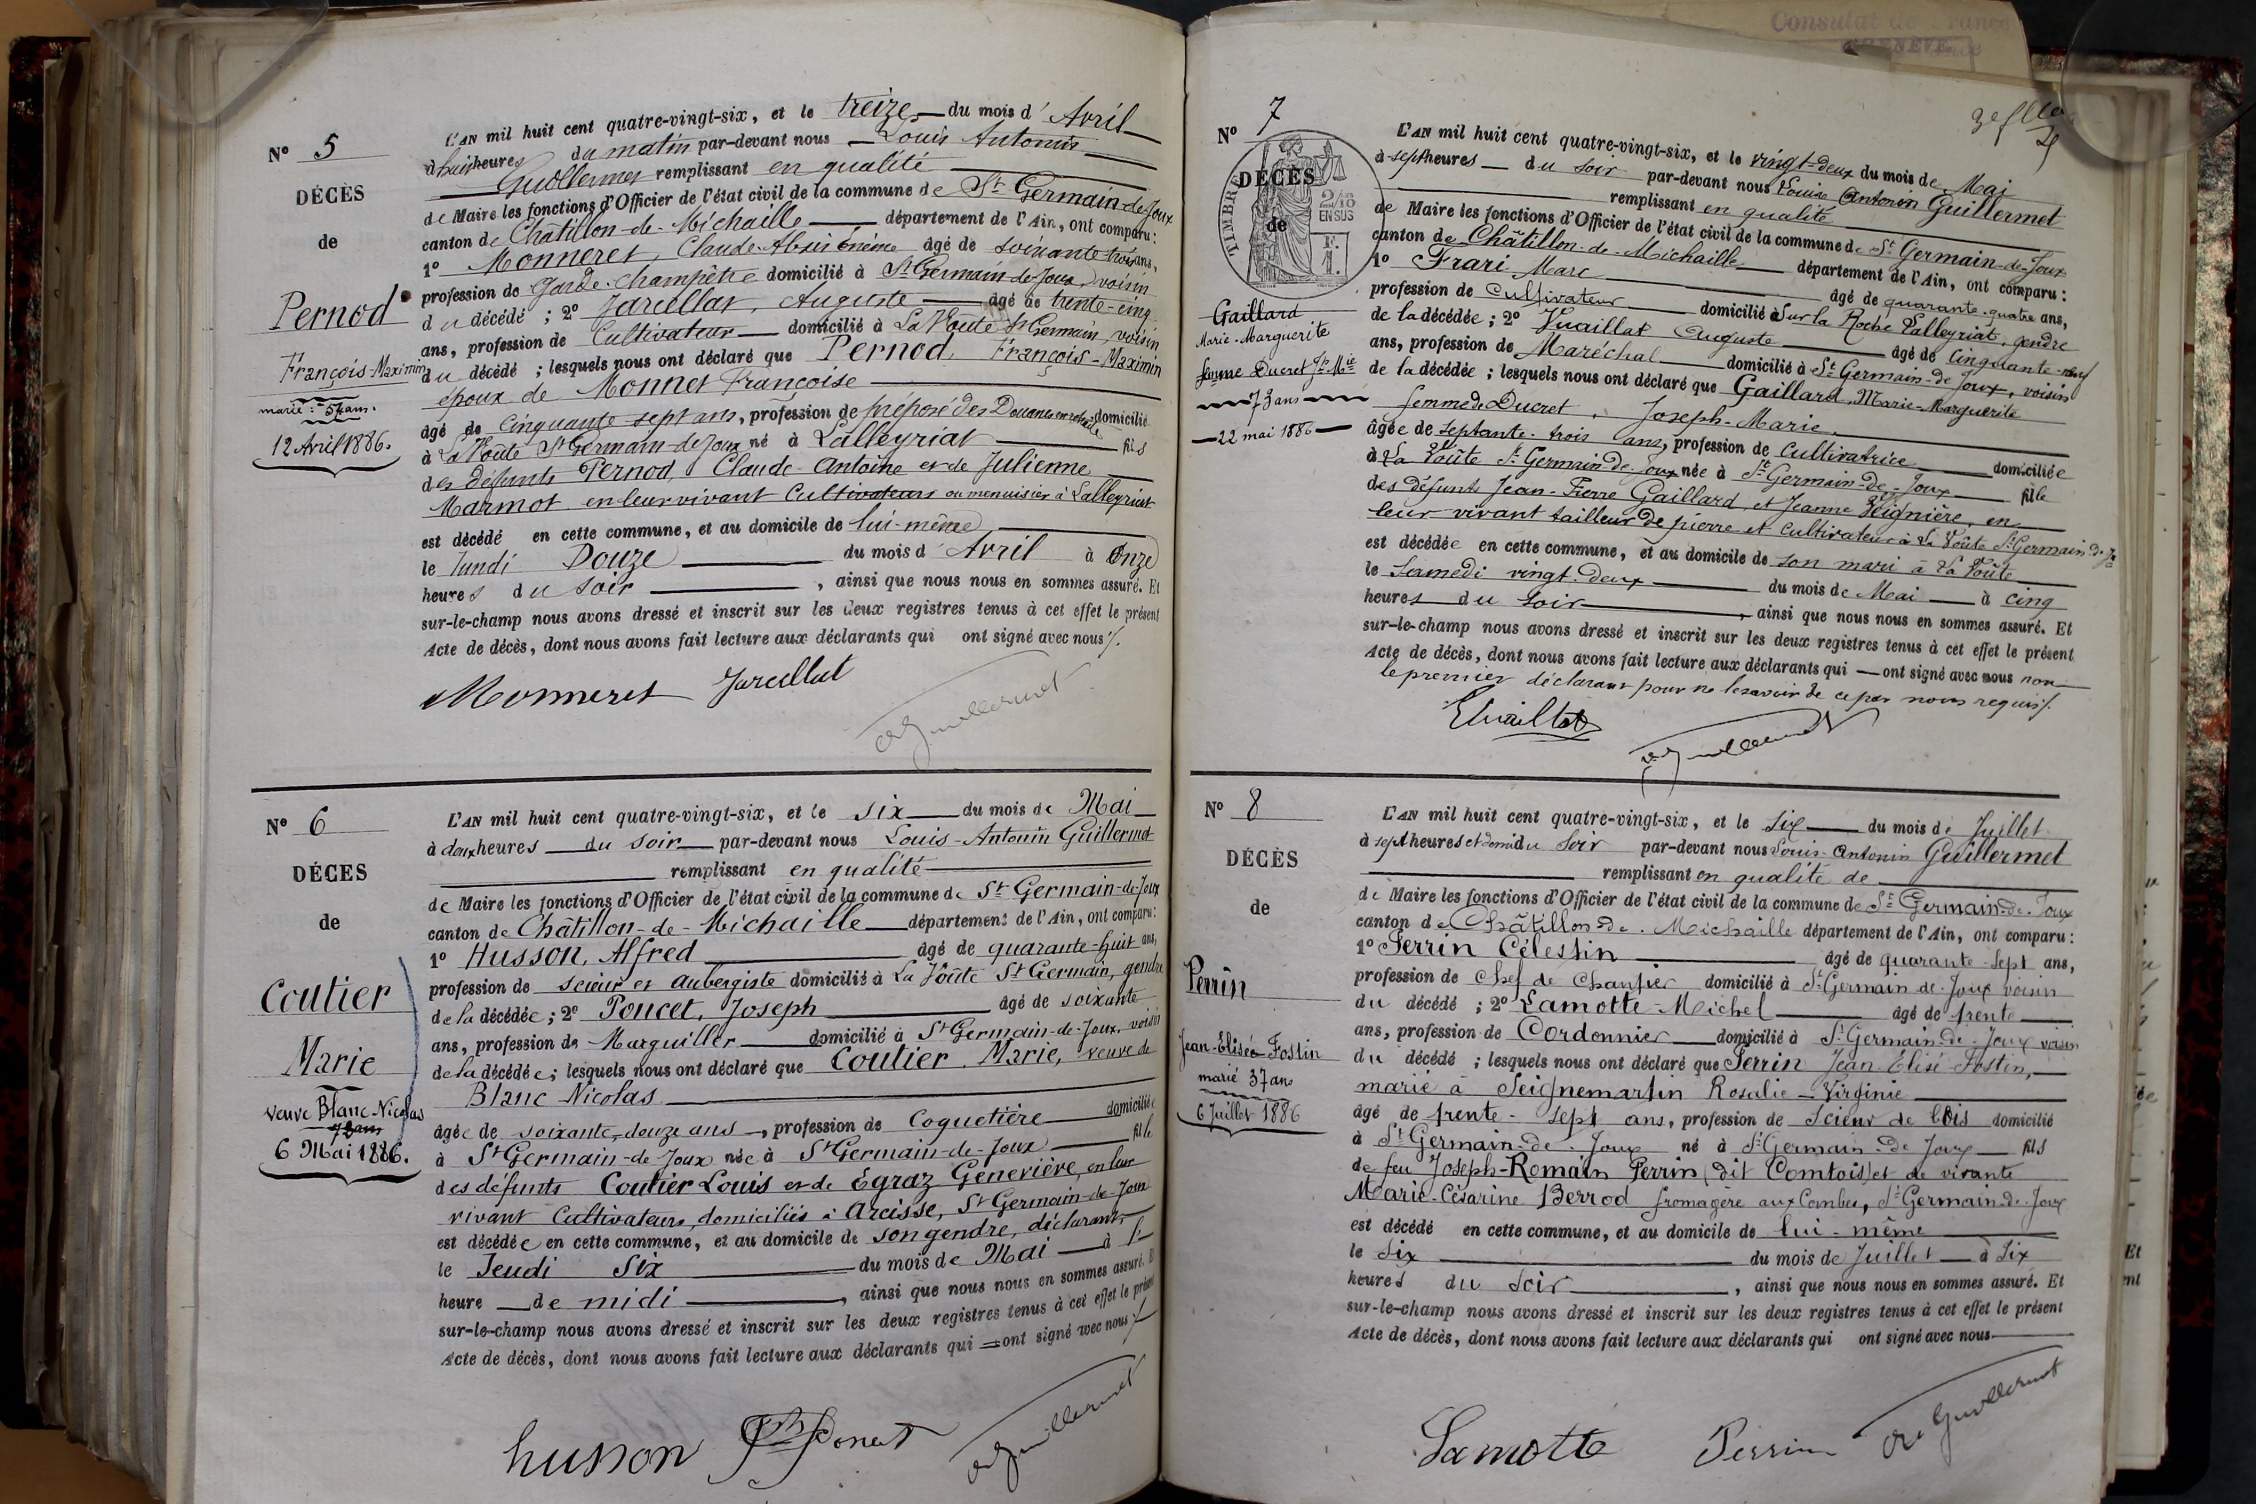 N° 5
DÉCÈS
de
Pernod
François-Maximin
marié : 57 ans.
12 Avril 1886.
L'AN mil huit cent quatre-vingt-six, et le treize du mois d' Avril
à huit heures du matin par-devant nous Louis Antonin
Guillermet remplissant en qualité
de Maire les fonctions d'Officier de l'état civil de la commune de St Germain-de-Joux
canton de Châtillon-de-Michaille département de l'Ain, ont comparu :
1° Monneret, Claude-Alexis âgé de soixante trois ans,
profession de Garde-champêtre domicilié à St Germain de Joux, voisin
du décédé ; 2° Jarcellat, Auguste âgé de trente-cinq
ans, profession de Cultivateur domicilié à La Voûte St Germain, voisin
du décédé ; lesquels nous ont déclaré que Pernod, François-Maximin
époux de Monnet Françoise
âgé de cinquante-sept ans, profession de préposé des Douanes en retraite domicilié
à La Voûte St Germain-de-Joux né à Lalleyriat fils
des défunts Pernod, Claude-Antoine et de Julienne
Marmot en leur vivant Cultivateurs ou menuisier à Lalleyriat
est décédé en cette commune, et au domicile de lui-même
le lundi Douze du mois d' Avril à Onze
heures du soir, ainsi que nous nous en sommes assuré. Et
sur-le-champ nous avons dressé et inscrit sur les deux registres tenus à cet effet le présent
Acte de décès, dont nous avons fait lecture aux déclarants qui ont signé avec nous ⁒
Monneret Jarcellat
Guillermet
N° 6
DÉCES
de
Coutier
Marie
veuve Blanc-Nicolas
72 ans
6 Mai 1886.
L'AN mil huit cent quatre-vingt-six, et le six du mois de Mai
à deux heures du soir par-devant nous Louis-Antonin Guillermet
remplissant en qualité
de Maire les fonctions d'Officier de l'état civil de la commune de St Germain-de-Joux
canton de Châtillon-de-Michaille département de l'Ain, ont comparu :
1° Husson, Alfred âgé de quarante-huit ans,
profession de scieur et aubergiste domicilié à La Voûte St Germain, gendre
de la décédée ; 2° Poncet, Joseph âgé de soixante
ans, profession de Marguiller domicilié à St Germain-de-Joux, voisin
de la décédée ; lesquels nous ont déclaré que Coutier, Marie, veuve de
Blanc Nicolas
âgée de soixante-douze ans, profession de Coquetière domiciliée
à St Germain-de-Joux née à St Germain-de-Joux fille
des défunts Coutier Louis et de Egraz Geneviève, en leur
vivant Cultivateurs, domiciliés à Arcisse, St Germain-de-Joux
est décédée en cette commune, et au domicile de son gendre, déclarant,
le Jeudi Six du mois de Mai à
heure de midi, ainsi que nous nous en sommes assuré. Et
sur-le-champ nous avons dressé et inscrit sur les deux registres tenus à cet effet le présent
Acte de décès, dont nous avons fait lecture aux déclarants qui ont signé avec nous ⁒
husson Poncet
Guillermet
Consulat de France
GENÈVE
N° 7
DÉCÈS
de
TIMBRE
2/10
EN SUS
Gaillard
Marie-Marguerite
femme Ducret Jh Mie
73 ans
22 mai 1886
L'AN mil huit cent quatre-vingt-six, et le vingt-deux du mois de Mai
à sept heures du soir par-devant nous Louis Antonin Guillermet
remplissant en qualité
de Maire les fonctions d'Officier de l'état civil de la commune de St Germain-de-Joux
canton de Châtillon-de-Michaille département de l'Ain, ont comparu :
1° Frari Marc âgé de quarante-quatre ans,
profession de Cultivateur domicilié à Sur la Roche Lalleyriat, gendre
de la décédée ; 2° Vuaillat Auguste âgé de cinquante-neuf
ans, profession de Maréchal domicilié à St Germain-de Joux, voisin
de la décédée ; lesquels nous ont déclaré que Gaillard, Marie-Marguerite
femme de Ducret, Joseph-Marie,
âgée de septante-trois ans, profession de Cultivatrice domiciliée
à La Voûte St Germain-de-Joux née à St Germain-de-Joux fille
des défunts Jean-Pierre Gaillard, et Jeanne Seignière, en
leur vivant tailleur de pierre et Cultivateurs à La Voûte St Germain de Jx
est décédée en cette commune, et au domicile de son mari à La Voûte
le samedi vingt-deux du mois de Mai à cinq
heures du soir, ainsi que nous nous en sommes assuré. Et
sur-le-champ nous avons dressé et inscrit sur les deux registres tenus à cet effet le présent
Acte de décès, dont nous avons fait lecture aux déclarants qui ont signé avec nous non
le premier déclarant pour ne le savoir de ce par nous requis ⁒
Vuaillat
Guillermet
N° 8
DÉCÈS
de
Perrin
Jean-Elisée-Fostin
marié 37 ans
6 Juillet 1886
L'AN mil huit cent quatre-vingt-six, et le six du mois de Juillet
à sept heures et demi du soir par-devant nous Louis-Antonin Guillermet
remplissant en qualité de
de Maire les fonctions d'Officier de l'état civil de la commune de St Germain-de-Joux
canton de Châtillon-de-Michaille département de l'Ain, ont comparu :
1° Perrin Célestin âgé de quarante-sept ans,
profession de Chef de Chantier domicilié à St Germain-de-Joux voisin
du décédé ; 2° Lamotte-Michel âgé de trente
ans, profession de Cordonnier domicilié à St Germain-de-Joux voisin
du décédé ; lesquels nous ont déclaré que Perrin Jean-Elisé-Fostin,
marié à Seignemartin Rosalie-Virginie
âgé de trente-sept ans, profession de Scieur de bois domicilié
à St Germain-de-Joux né à St Germain-de Joux fils
de feu Joseph-Romain Perrin (dit Comtois) et de vivante
Marie-Césarine Berrod fromagère aux Combes, St Germain-de-Joux
est décédé en cette commune, et au domicile de lui-même
le six du mois de Juillet à Six
heures du soir, ainsi que nous nous en sommes assuré. Et
sur-le-champ nous avons dressé et inscrit sur les deux registres tenus à cet effet le présent
Acte de décès, dont nous avons fait lecture aux déclarants qui ont signé avec nous
Lamotte Perrin
Guillermet